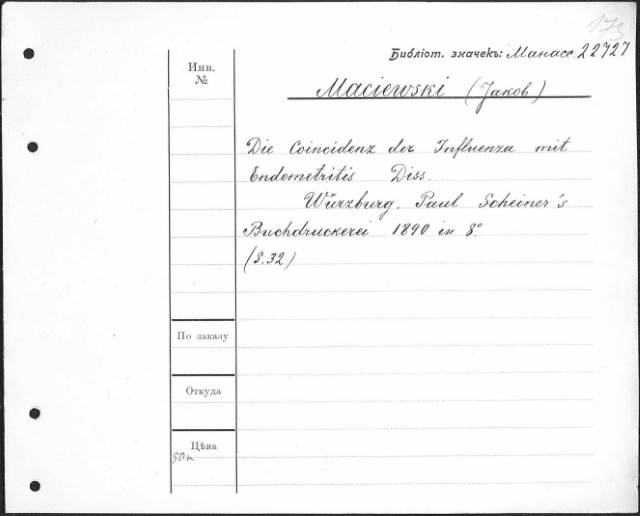 173
Библіот. значекъ: Манасс. 22727
Инв.
№
Maciewski (Jakob)
Die Coincidenz der Influenza mit
Endometritis Diss.
Würzburg. Paul Scheiner's
Buchdruckerei 1890 in 8°
(S. 32)
По заказу
Откуда
Цѣна
50к